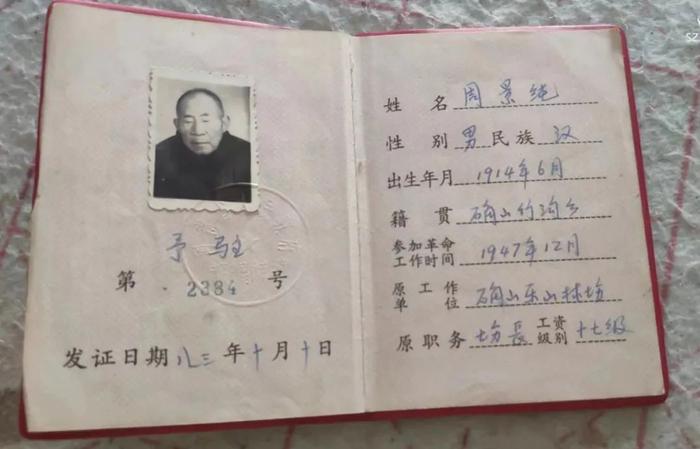 予 驻
第 2384 号
发证日期 八三 年 十 月 十 日
姓 名 周景纯
性 别 男 民族 汉
出生年月 1914年6月
籍 贯 确山竹沟乡
参加革命工作时间 1947年12月
原工作单位 确山乐山林场
原职务 场長 工资级别 十七级